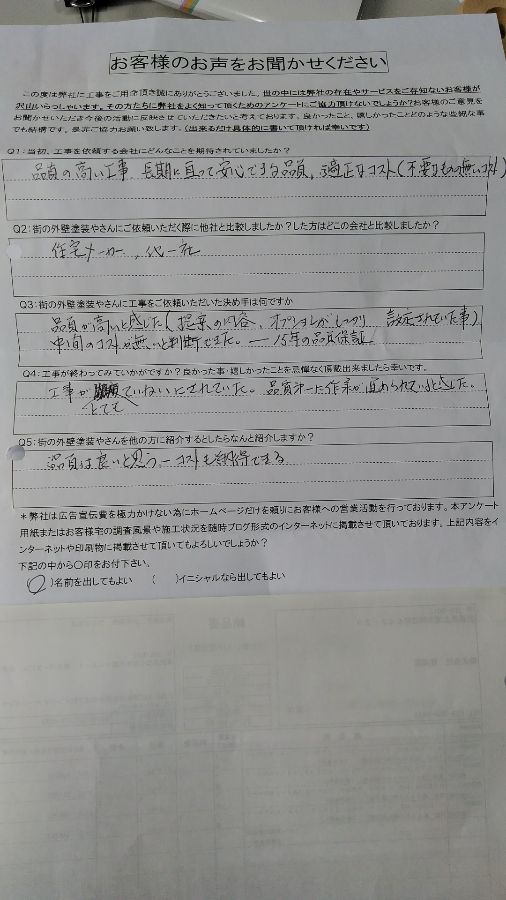 お客様のお声をお聞かせください
この度は弊社に工事をご用命頂き誠にありがとうございました。世の中には弊社の存在やサービスをご存知ないお客様が
沢山いらっしゃいます。その方たちに弊社をよく知って頂くためのアンケートにご協力頂けないでしょうか?お客様のご意見を
お聞かせいただき今後の活動に反映させていただきたいと考えております。良かったこと、嬉しかったことどのような些細な事
でも結構です。是非ご協力お願い致します。(出来るだけ具体的に書いて頂ければ幸いです)
Q1:当初、工事を依頼する会社にどんなことを期待されていましたか?
品質の高い工事、長期に亘って安心できる品質、適正なコスト(不要なもの無いコスト)
Q2:街の外壁塗装やさんにご依頼いただく際に他社と比較しましたか?した方はどこの会社と比較しましたか?
住宅メーカー、他一社
Q3:街の外壁塗装やさんに工事をご依頼いただいた決め手は何ですか
品質が高いと感じた(提案の内容、オプションがしっかり 設定されていた事)
中間のコストが無いと判断できた。ー15年の品質保証
Q4:工事が終わってみていかがですか?良かった事・嬉しかったことを忌憚なく頂戴出来ましたら幸いです。
工事がとてもていねいにされていた。品質第一に作業が進められていると感じた。
Q5:街の外壁塗装やさんを他の方に紹介するとしたらなんと紹介しますか?
品質は良いと思うーコストも納得できる
*弊社は広告宣伝費を極力かけない為にホームページだけを頼りにお客様への営業活動を行っております。本アンケート
用紙またはお客様宅の調査風景や施工状況を随時ブログ形式のインターネットに掲載させて頂いております。上記内容をイ
ンターネットや印刷物に掲載させて頂いてもよろしいでしょうか?
下記の中から○印をお付下さい。
(○)名前を出してもよい ( )イニシャルなら出してもよい